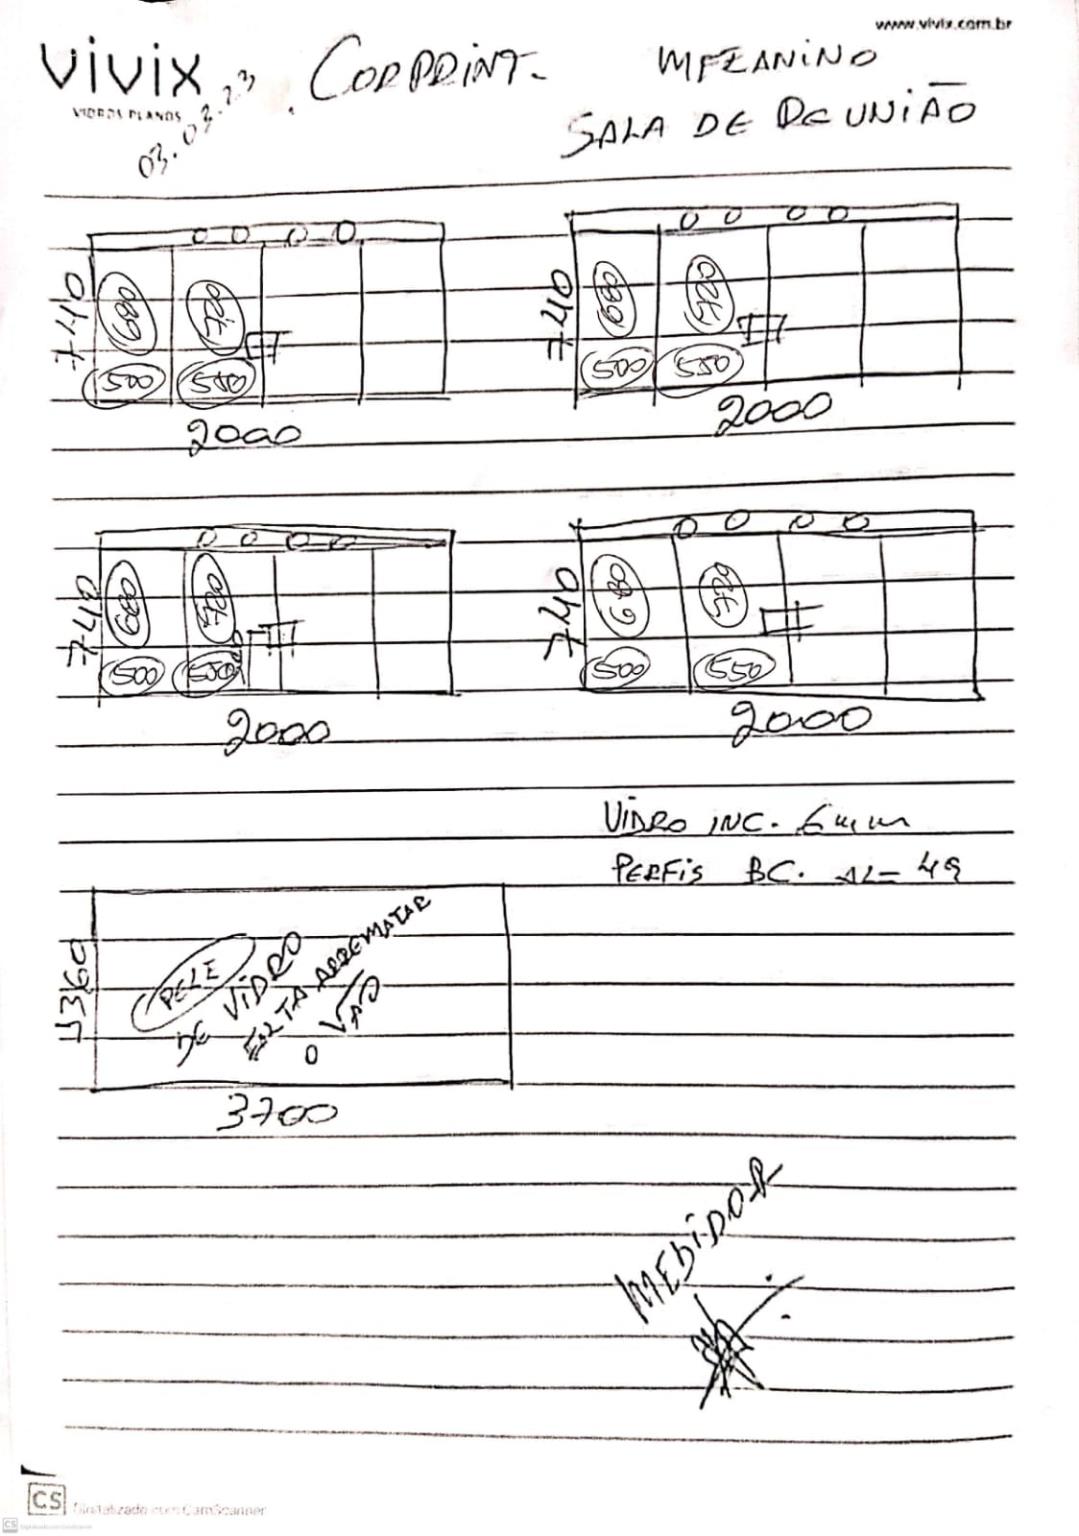 www.vivix.com.br
vivix
VIDROS PLANOS
03.03.23
CORPRINT.
MEZANINO
SALA DE REUNIÃO
740
680
720
500
550
2000
740
680
720
500
550
2000
740
680
720
500
550
2000
740
680
720
500
550
2000
VIDRO INC. 6mm
PERFIS BC.
4360
PELE
DE VIDRO
FALTA ARREMATAR
O VÃO
3700
MEDIDOR
CS
Digitalizado com CamScanner
CS